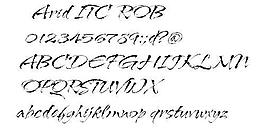 Arid ITC ROB
0123456789:;?@
ABCDEFGHIJKLMN
OPQRSTUVWX
abcdefghijklmnop qrstuvwxyz